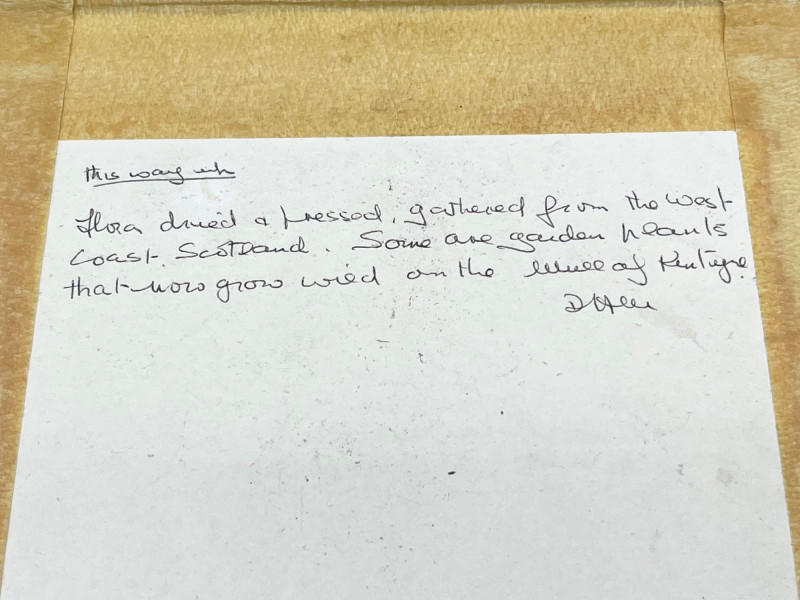 this way up
flora dried & pressed, gathered from the West
Coast, Scotland. Some are garden plants
that now grow wild on the Mull of Kintyre.